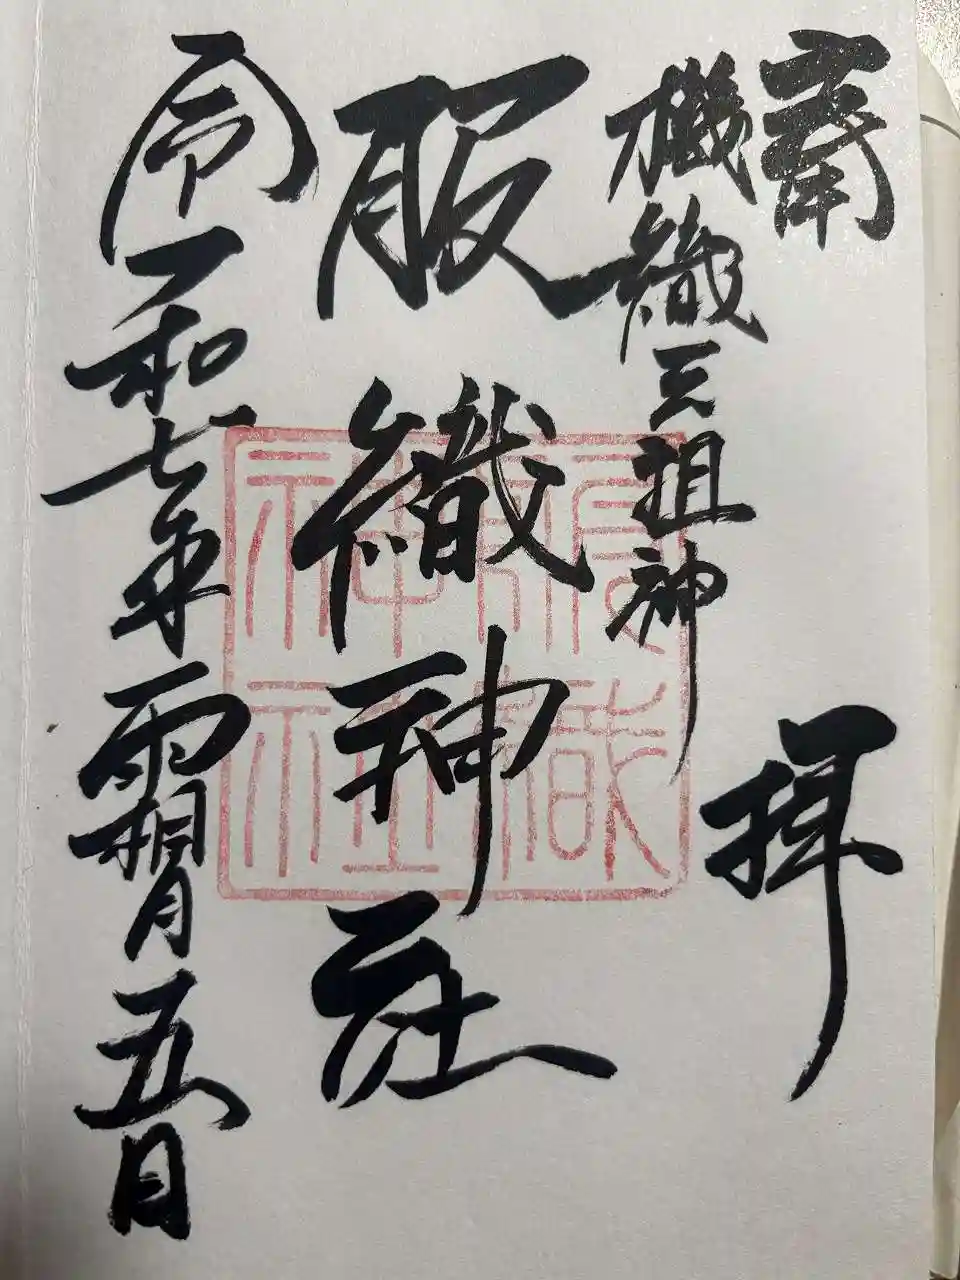 奉 拝
機織三祖神
服織神社
服織神社
令和七年霜月五日